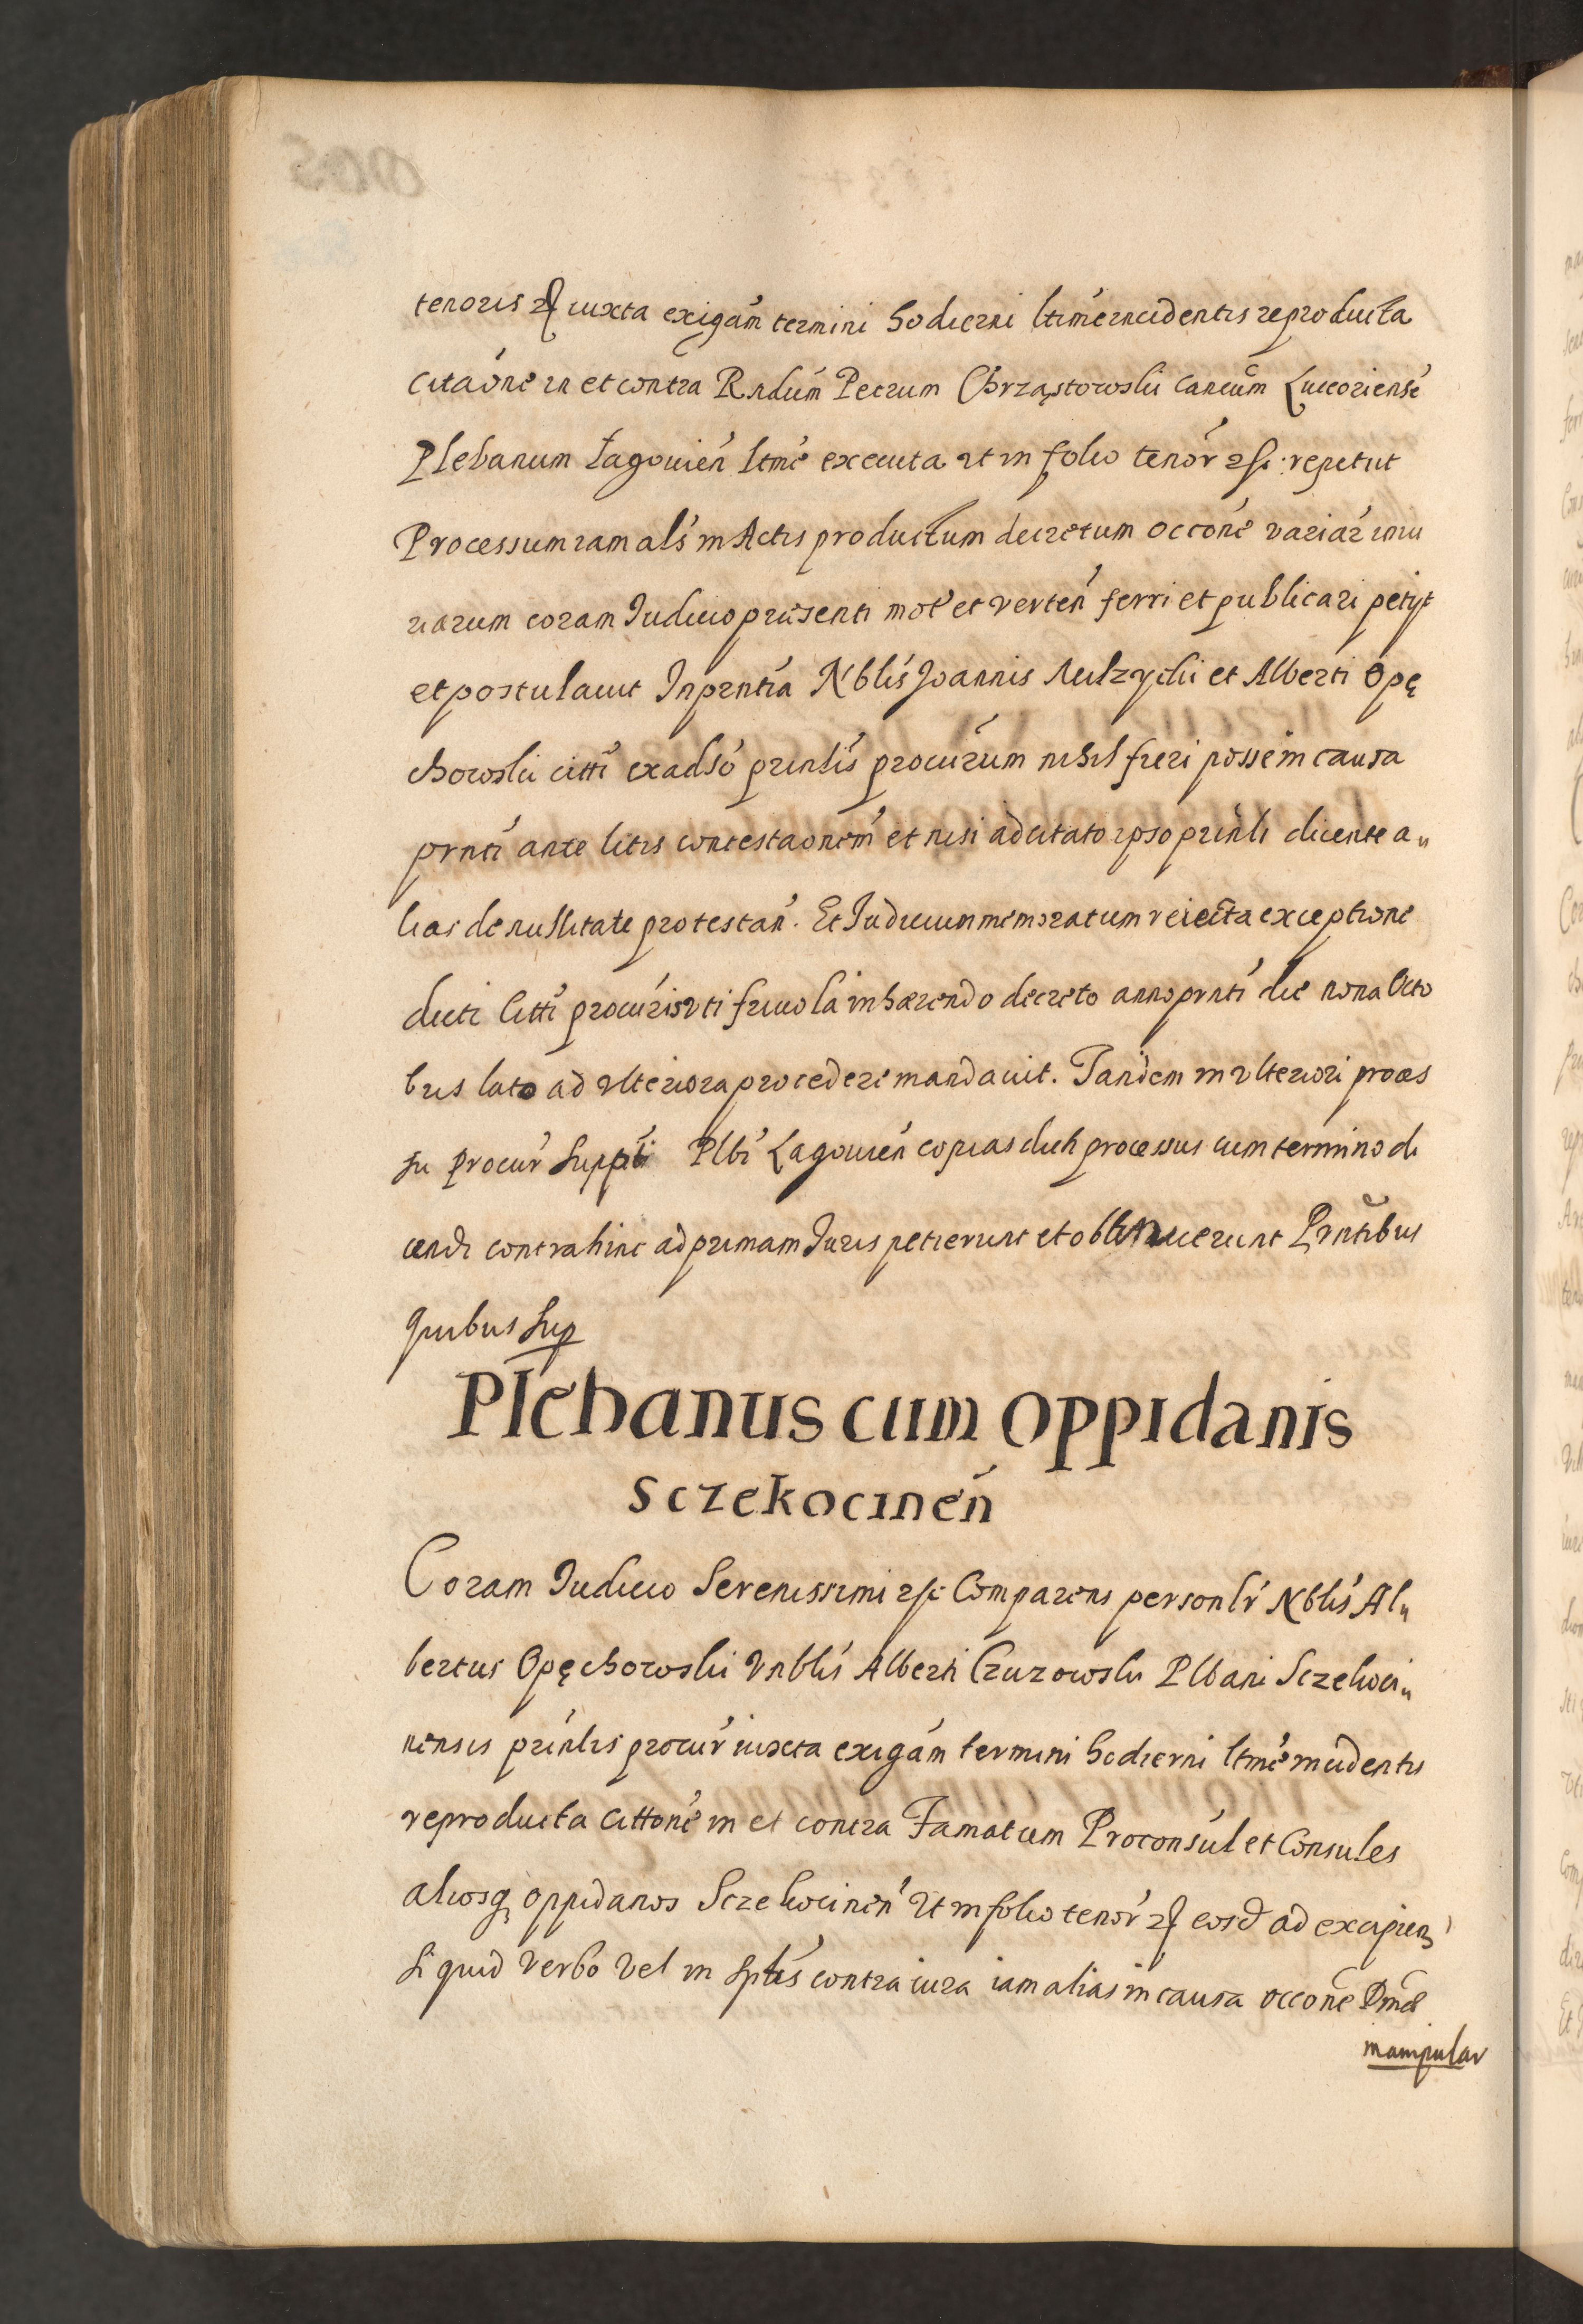 tenoris iuxta exigám termini hodierni ltime incidentis reproducta
citaóne in et contra Rndúm Petrum Chrząstowski Cancum Lucoriensé
Plebanum Łagouień ltmé executa ut in folio tenór repetut
Processum iam als in Actis productum decretum occóne variar iniu
riarum coram Iudicio præsenti mot et vertén ferri et publicari petijt
et postulauit Inprntia Nblis Joannis et Alberti Opę
chowski citti exadsó prinlis procurum nihil fieri posse in causa
prnti ante litis contestaonem et nisi adcitato ipso prinli dicente a„
lias de nullitate protestań. Et Iudicium memoratum reiecta exceptione
dicti Citti procúris uti friuola inhærendo decreto anno prnti die nona Octo
bris lato ad vlteriora procedere mandauit. Tandem in vlteriori proces
su procur Plbi Lagouień copias dicti processus cum termino di
cendi contra hinc ad primam Iuris petierunt et obtinuerunt Prntibus
quibus sup
Plebanus cum oppidanis
sczekocinéń
Coram Iudicio Serenissimi Comparens personlr Nblis Al„
bertus Opęchowski Vnblis Alberti Czuzowski Plbani Sczekoci„
nensis prinlis procúr iuxta exigám termini hodierni ltmé incidentis
reproducta cittoné in et contra Famatum Proconsul et Consules
aliosq oppidanos Sczekocinén ut in folio tenór eosd ad excipien
si quid verbo vel in sptis contra iura iam alias in causa occone Dmæ
manipular